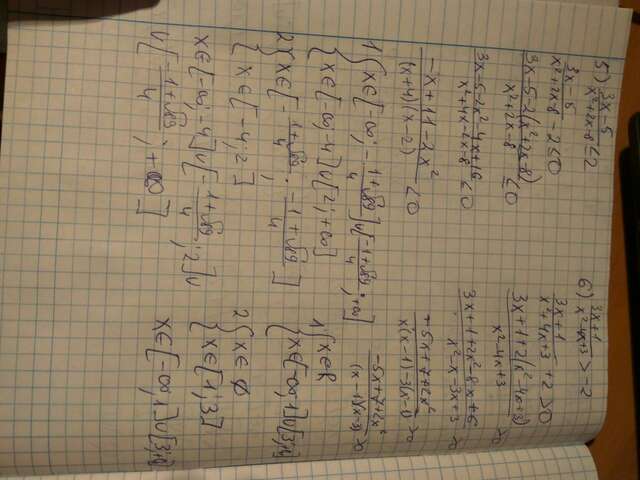 5) 3x-5/x²+2x-8 ≤ 2
3x-5/x²+2x-8 - 2 ≤ 0
3x-5-2(x²+2x-8)/x²+2x-8 ≤ 0
3x-5-2x²-4x+16/x²+4x-2x-8 ≤ 0
-x+11-2x²/(x+4)(x-2) ≤ 0
1 { x∈[-∞; -1+√89/4] ∪ [-1+√89/4; +∞]
{ x∈[-∞; -4] ∪ [2; +∞]
2 { x∈[-1+√89/4; -1+√89/4]
{ x∈[-4; 2]
x∈[-∞; -4] ∪ [-1+√89/4; 2] ∪
∪ [-1+√89/4; +∞]
6) 3x+1/x²-4x+3 > -2
3x+1/x²-4x+3 + 2 > 0
3x+1+2(x²-4x+3)/x²-4x+3 > 0
3x+1+2x²-8x+6/x²-x-3x+3 > 0
-5x+7+2x²/x(x-1)-3(x-1) > 0
-5x+7+2x²/(x-1)(x-3) > 0
1 { x∈R
{ x∈[-∞; 1] ∪ [3; +∞]
2 { x∈∅
{ x∈[1; 3]
x∈[-∞; 1] ∪ [3; +∞]